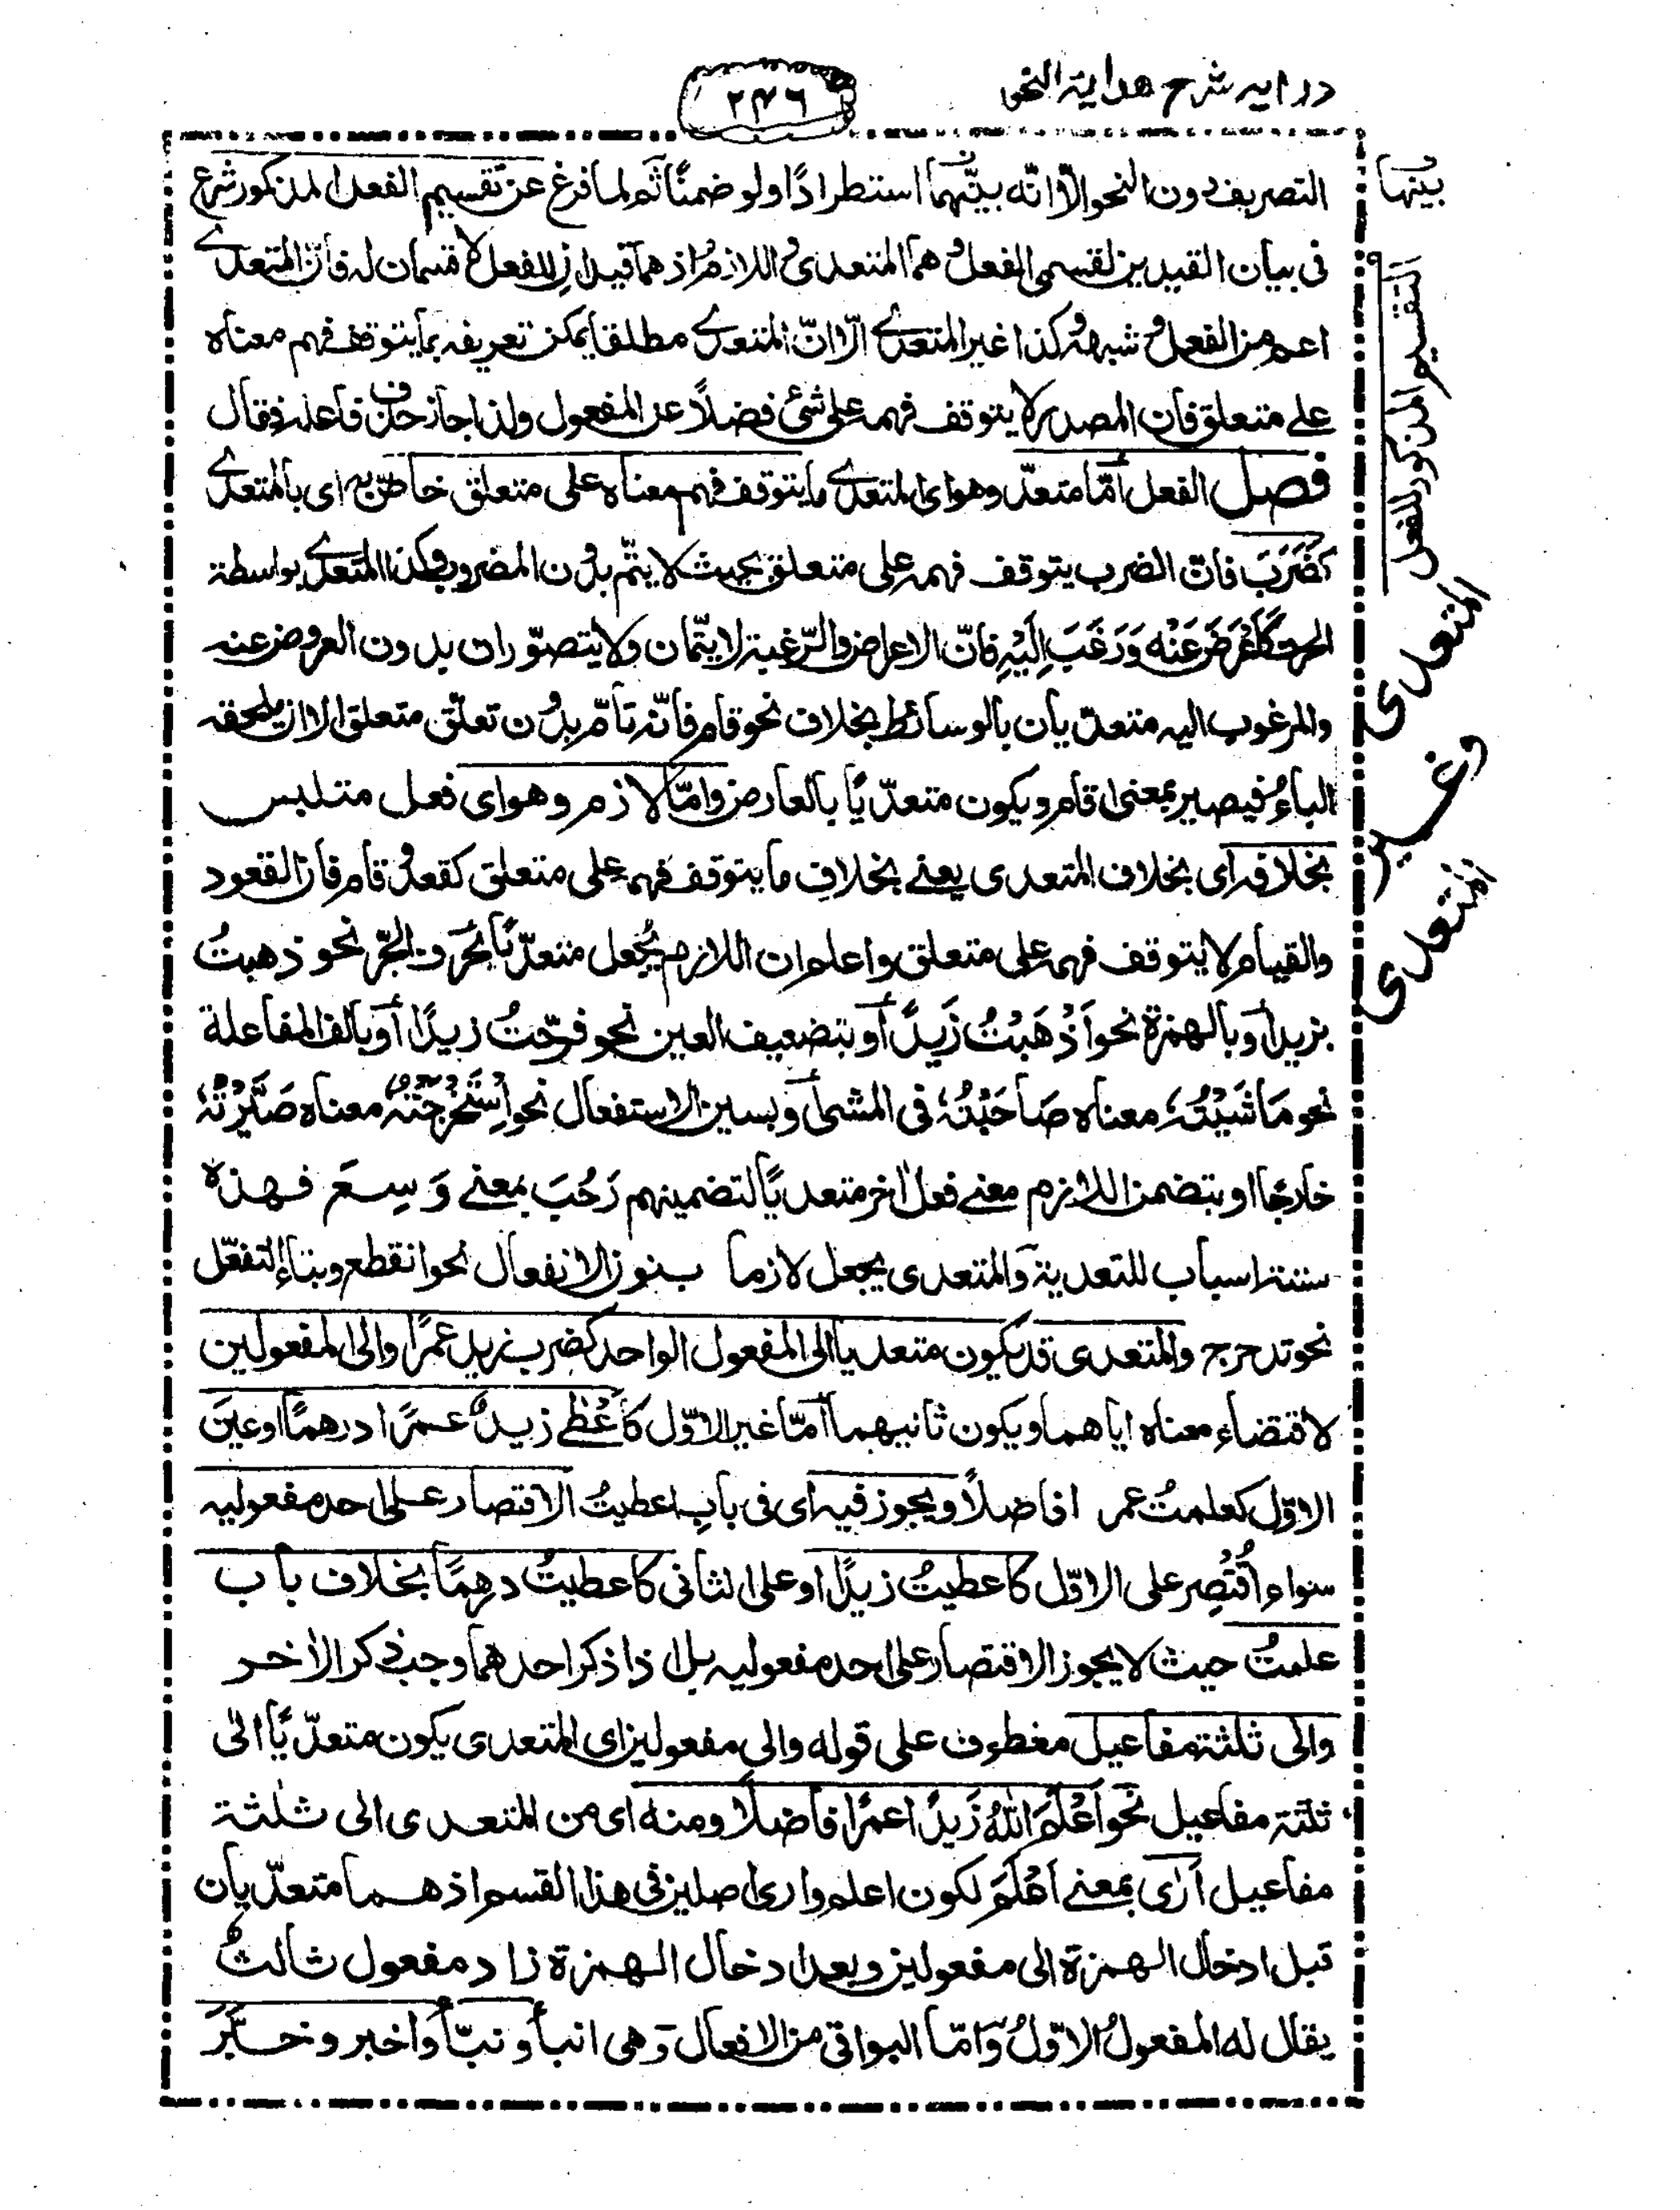 درایه شرح هدایة النحو
۲۴۶
التصریف دون النحو الّا انّه بیّنهما استطرادًا ولو ضمنًا ثم لما فرغ عن تقسیم الفعل المذکور شرع
فی بیان القیدین لقسمی الفعل وهما المتعدی واللازم اذ هما قیدان للفعل لا قسمان له فانّ المتعدے
اعم من الفعل وشبهه وکذا غیر المتعدے الّا انّ المتعدے مطلقا یمکن تعریفه بما یتوقف فهم معناه
علی متعلق فان المصدر لا یتوقف فهمه علی شئ فضلًا عن المفعول ولذا جاز حذف فاعله فقال
فصل الفعل امّا متعدّ وهو ای المتعدے ما یتوقف فهم معناه علی متعلق خاصّ به ای بالمتعدے
کضَرَبَ فانّ الضرب یتوقف فهمه علی متعلق بحیث لا یتّم بدون المضروب وکذا المتعدے بواسطة
الحرف کَاَعْرَضَ عَنْه وَرَغَبَ اِلَیْهِ فانّ الاعراض والرّغبة لا یتمّان ولا یتصوّران بدون العروض عنه
والمرغوب الیه متعدّیان بالوسائط بخلاف نحو قام فانّه تامّ بدون تعلّق متعلق الا ان یلحقه
الباءُ فیصیر بمعنی اقام ویکون متعدّیًا بالعارض وامّا لازم وهو ای فعل متلبس
بخلافه ای بخلاف المتعدی یعنے بخلافِ ما یتوقف فهمه علی متعلق کقعد وقام فان القعود
والقیام لا یتوقف فهمه علی متعلق واعلم ان اللازم یُجعل متعدّیًا بحرف الجّر نحو ذهبتُ
بزید او بالهمزة نحو اَذْهَبْتُ زَیدًا او بتضعیف العین نحو فرّحتُ زیدًا او بالف المفاعلة
نحو مَاشَیْتُهٗ معناه صَاحَبْتُهٗ فی المشی او بسین الاستفعال نحو اِسْتَخْرَجْتُهٗ معناه صَیَّرْتُهٗ
خارجًا او بتضمن اللازم معنے فعل اٰخر متعدیًا لتضمینهم رَحُبَ بمعنے وَسِعَ فهذه
ستة اسباب للتعدیة والمتعدی یجعل لازما بنون الانفعال نحو انقطع وبتاء التفعّل
نحو تدحرج والمتعدی قد یکون متعدیا الی المفعول الواحد کضرب زید عمرًا والی المفعولین
لاقتضاء معناه ایاهما ویکون ثانیهما امّا غیر الاوّل کاَعْطٰے زیدٌ عمرًا درهمًا او عینَ
الاوّل کعلمتُ عمرا فاضلًا ویجوز فیه ای فی بابِ اعطیتُ الاقتصار علی احد مفعولیه
سواء اُقْتُصِر علی الاوّل کاعطیتُ زیدًا او علی الثانی کاعطیتُ درهمًا بخلاف باب
علمتُ حیث لا یجوز الاقتصار علی احد مفعولیه بل اذا ذکر احدهما وجب ذکر الاٰخر
والی ثلثة مفاعیل معطوف علی قوله والی مفعولین ای المتعدی یکون متعدّیًا الی
ثلثة مفاعیل نحو اَعْلَمَ اللهُ زَیدًا عمرًا فاضلًا ومنه ای من المتعدی الی ثلثة
مفاعیل اَرٰی بمعنے اَعْلَمَ لکون اعلم واری اصلین فی هذا القسم اذ هما متعدّیان
قبل ادخال الهمزة الی مفعولین وبعد ادخال الهمزة زاد مفعول ثالثٌ
یقال له المفعولُ الاوّلُ وَامّا البواقی من الافعال وَهی انبأ ونبّأ واخبر وخَبَّرَ
بینها
التقسیم المذکور للفعل
المتعدی
وغیر
المتعدی